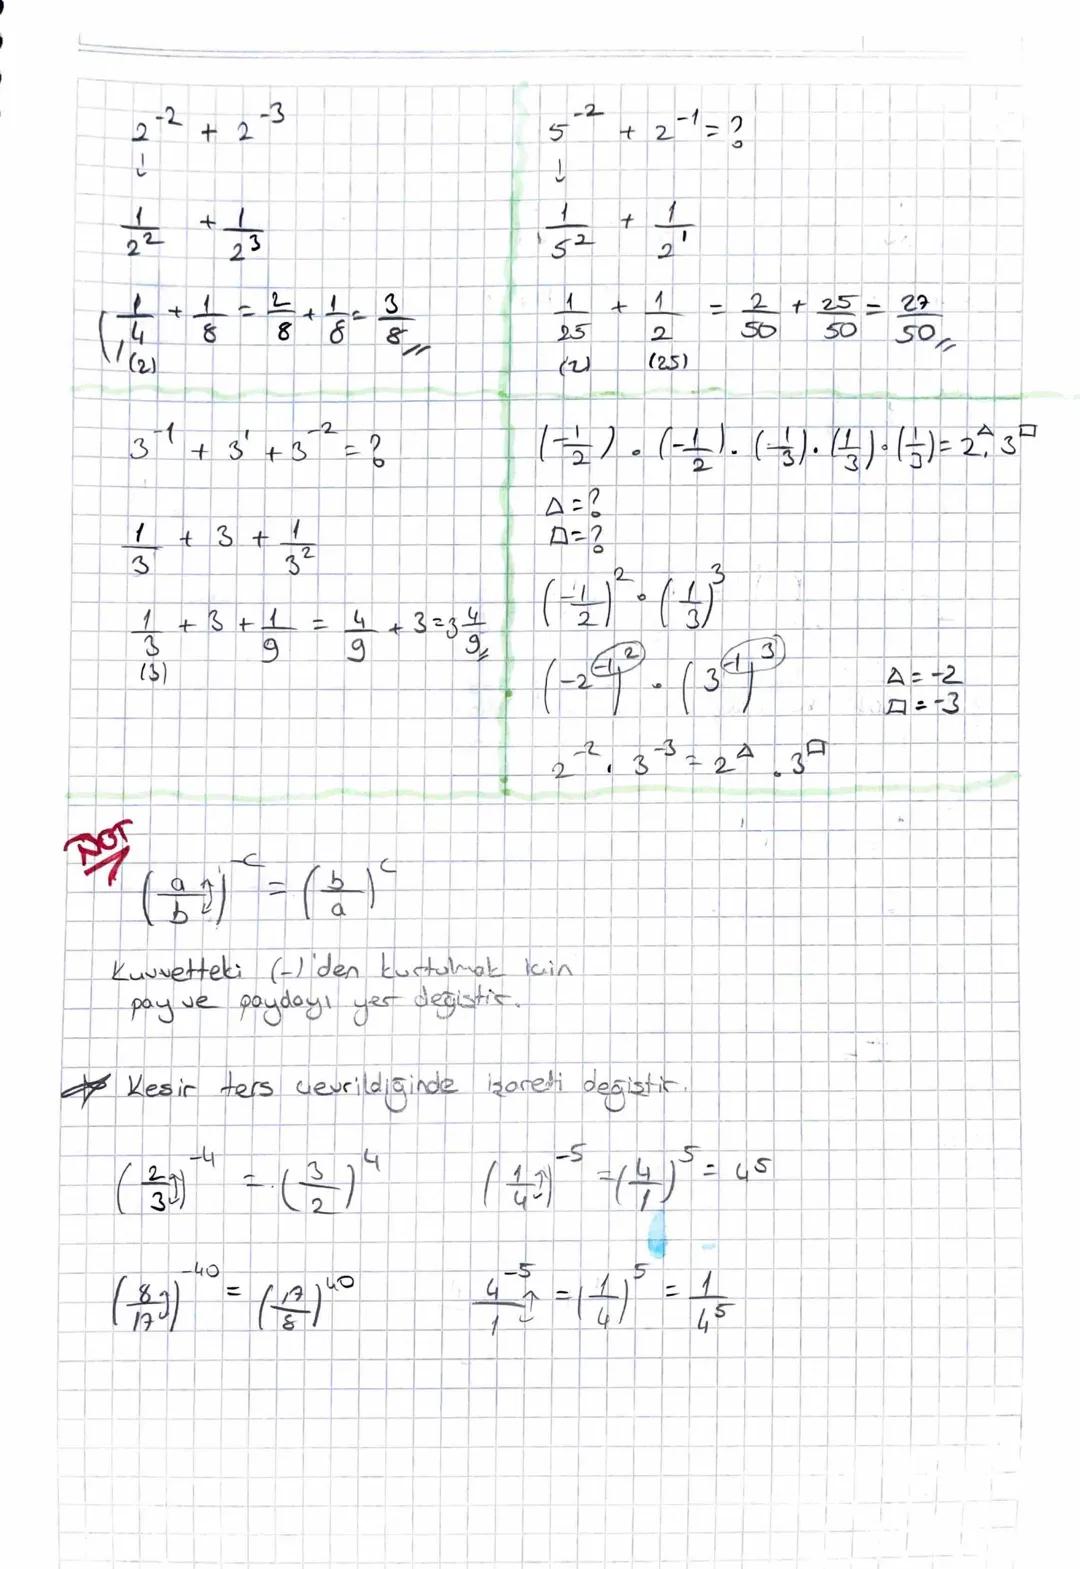 2⁻² + 2⁻³
↓
1/2² + 1/2³
1/4 + 1/8 = 2/8 + 1/8 = 3/8
(2)
5⁻² + 2⁻¹ = ?
↓
1/5² + 1/2¹
1/25 + 1/2 = 2/50 + 25/50 = 27/50
(2) (25)
3⁻¹ + 3¹ + 3⁻² = ?
1/3 + 3 + 1/3²
1/3 + 3 + 1/9 = 4/9 + 3 = 3 4/9
(3)
(-1/2) . (-1/2) . (-1/3) . (1/3) . (1/3) = 2^Δ . 3^□
Δ = ?
□ = ?
(-1/2)² . (1/3)³
(-2⁻¹)² . (3⁻¹)³
Δ = -2
□ = -3
2⁻² . 3⁻³ = 2^Δ . 3^□
NOT
(a/b)^-c = (b/a)^c
Kuvvetteki (-)'den kurtulmak için
pay ve paydayı yer değiştir.
Kesir ters çevrildiğinde işareti değiştir.
(2/3)⁻⁴ = (3/2)⁴
(1/4)⁻⁵ = (4/1)⁵ = 4⁵
(8/17)⁻⁴⁰ = (17/8)⁴⁰
4⁻⁵/1 = (1/4)⁵ = 1/4⁵